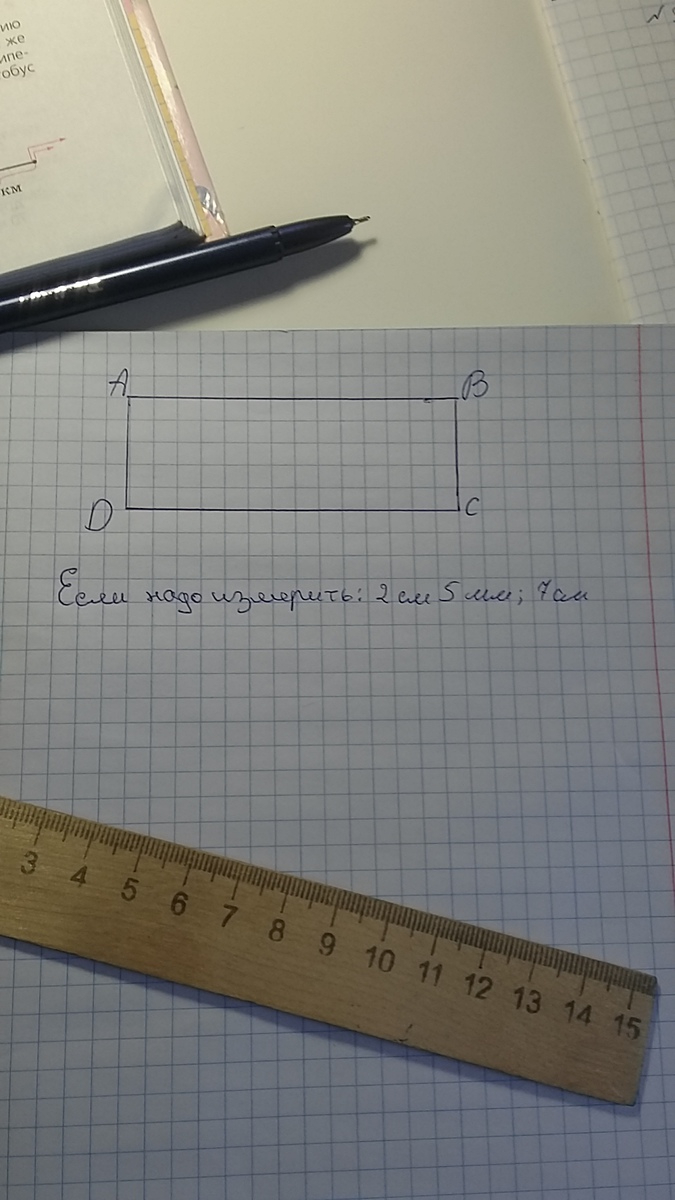 ию
же
ипе-
обус
км
A
B
D
C
Если надо измерить: 2 см 5 мм; 7 см
3 4 5 6 7 8 9 10 11 12 13 14 15